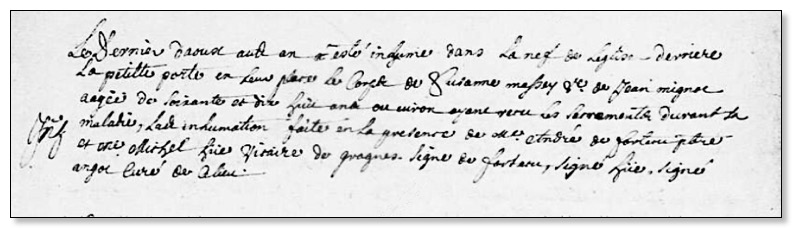 Le dernier daoust audt an a esté inhumé dans la nef de leglise derriere
la petitte porte en leur place le Corps de Susanne massey Vve de Jean mignot
aagée de soixante et dix huit ans ou viron ayant receu les sacrements durant sa
maladie, Ladt inhumation faite en la presence de Me André de fortecu pbre
et Me Michel hüe Vicaire de gragnes. signé de fortecu, signé hüe, signé
angot Curé de